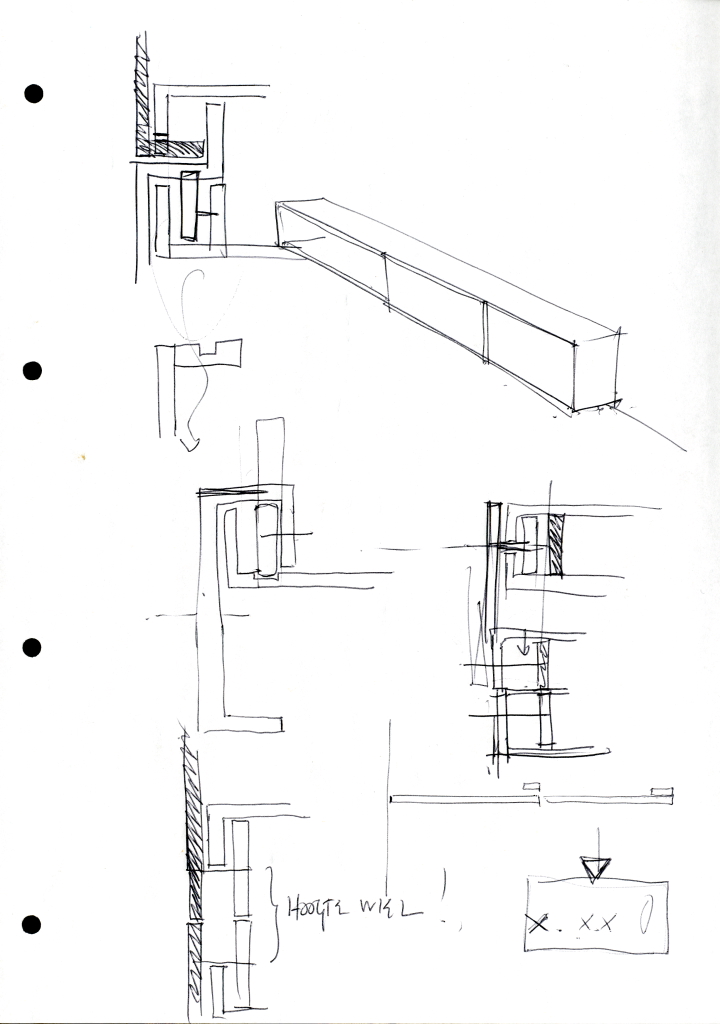 HOOGTE WIEL !
X. XX 0